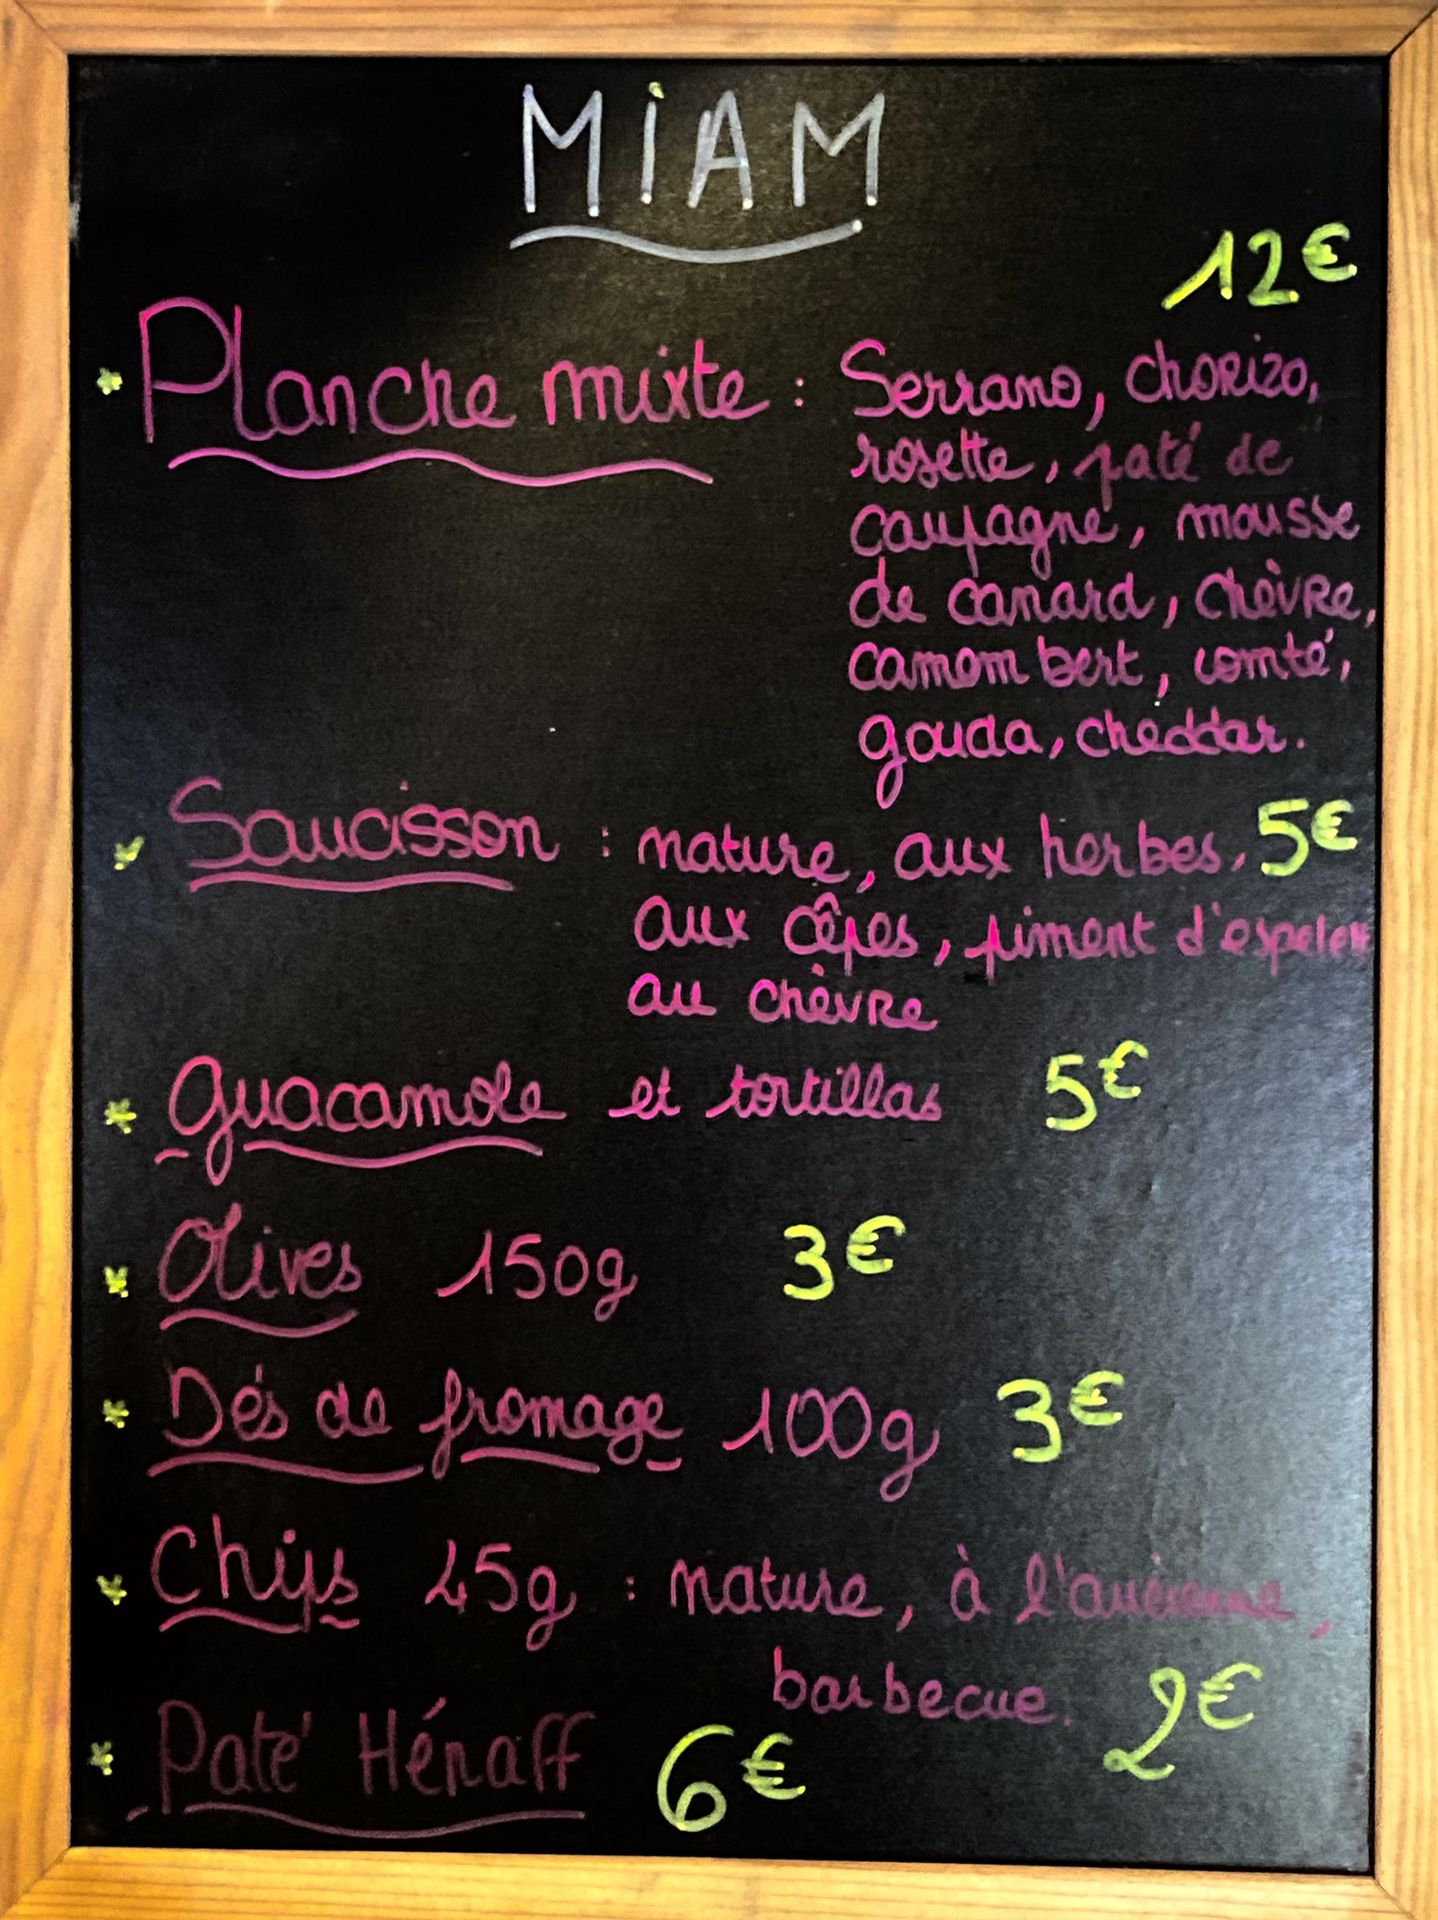 MiAM
12€
* Planche mixte : Serrano, chorizo,
rosette, paté de
campagne, mousse
de canard, chèvre,
camembert, comté,
gouda, cheddar.
* Saucisson : nature, aux herbes, 5€
aux cêpes, piment d'espelette
au chèvre
* Guacamole et tortillas 5€
* Olives 150g 3€
* Dés de fromage 100g 3€
* Chips 45g : nature, à l'ancienne,
barbecue. 2€
* Paté Hénaff 6€